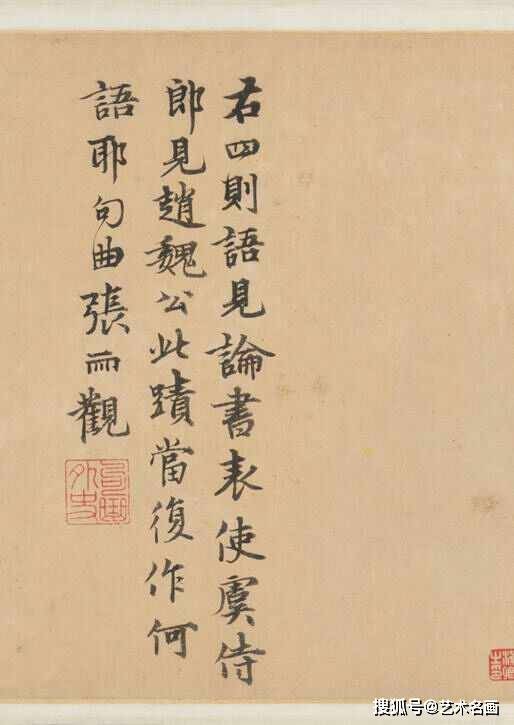 右四則語見論書表使虞侍
郎見趙魏公此蹟當復作何
語耶句曲張雨觀
搜狐号@艺术名画